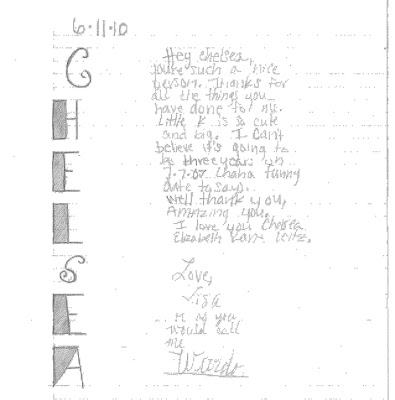 6·11·10
CHELSEA
Hey Chelsea,
You're such a nice
person. Thanks for
all the things you
have done for me.
Little K is so cute
and big. I can't
believe it's going to
be three years on
7.7.07 haha funny
date to say.
Well thank you,
Amazing you.
I love you Chelsea
Elizabeth
Love,
Lisa
as you
would call
me